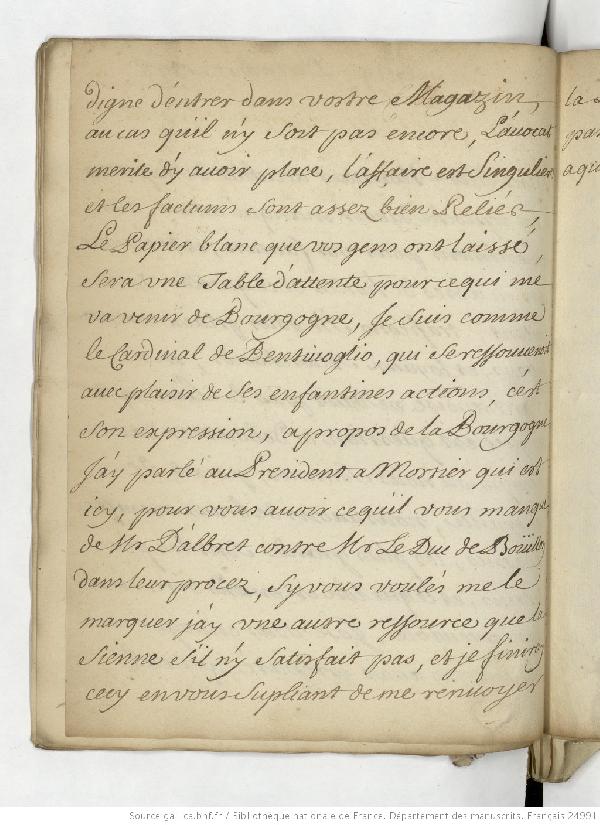 digne d'éntrer dans vostre Magazin,
au cas qu'il n'y soit pas éncore, L'auocat
merite d'y auoir place, l'affaire est Singuliere
et les factums sont assez bien Reliés,
Le Papier blanc que vos gens ont laissé
sera vne Table d'attente pour ce qui me
va venir de Bourgogne, Je suis comme
le Cardinal de Bentiuoglio, qui se ressouuenoit
auec plaisir de ses enfantines actions, c'ést
son expression, a propos de la Bourgogne
J'ay parlé au President a Mortier qui est
icy, pour vous auoir ce quil vous manque
de Mr D'albret contre Mr Le Duc de Boüillon
dans leur procez, sy vous voulés me le
marquer j'ay vne autre ressource que la
sienne s'il n'y satisfait pas, et je finirez
cecy en vous supliant de me renuoyer
la
par
a qui
Source gallica.bnf.fr / Bibliothèque nationale de France. Département des manuscrits. Français 24991